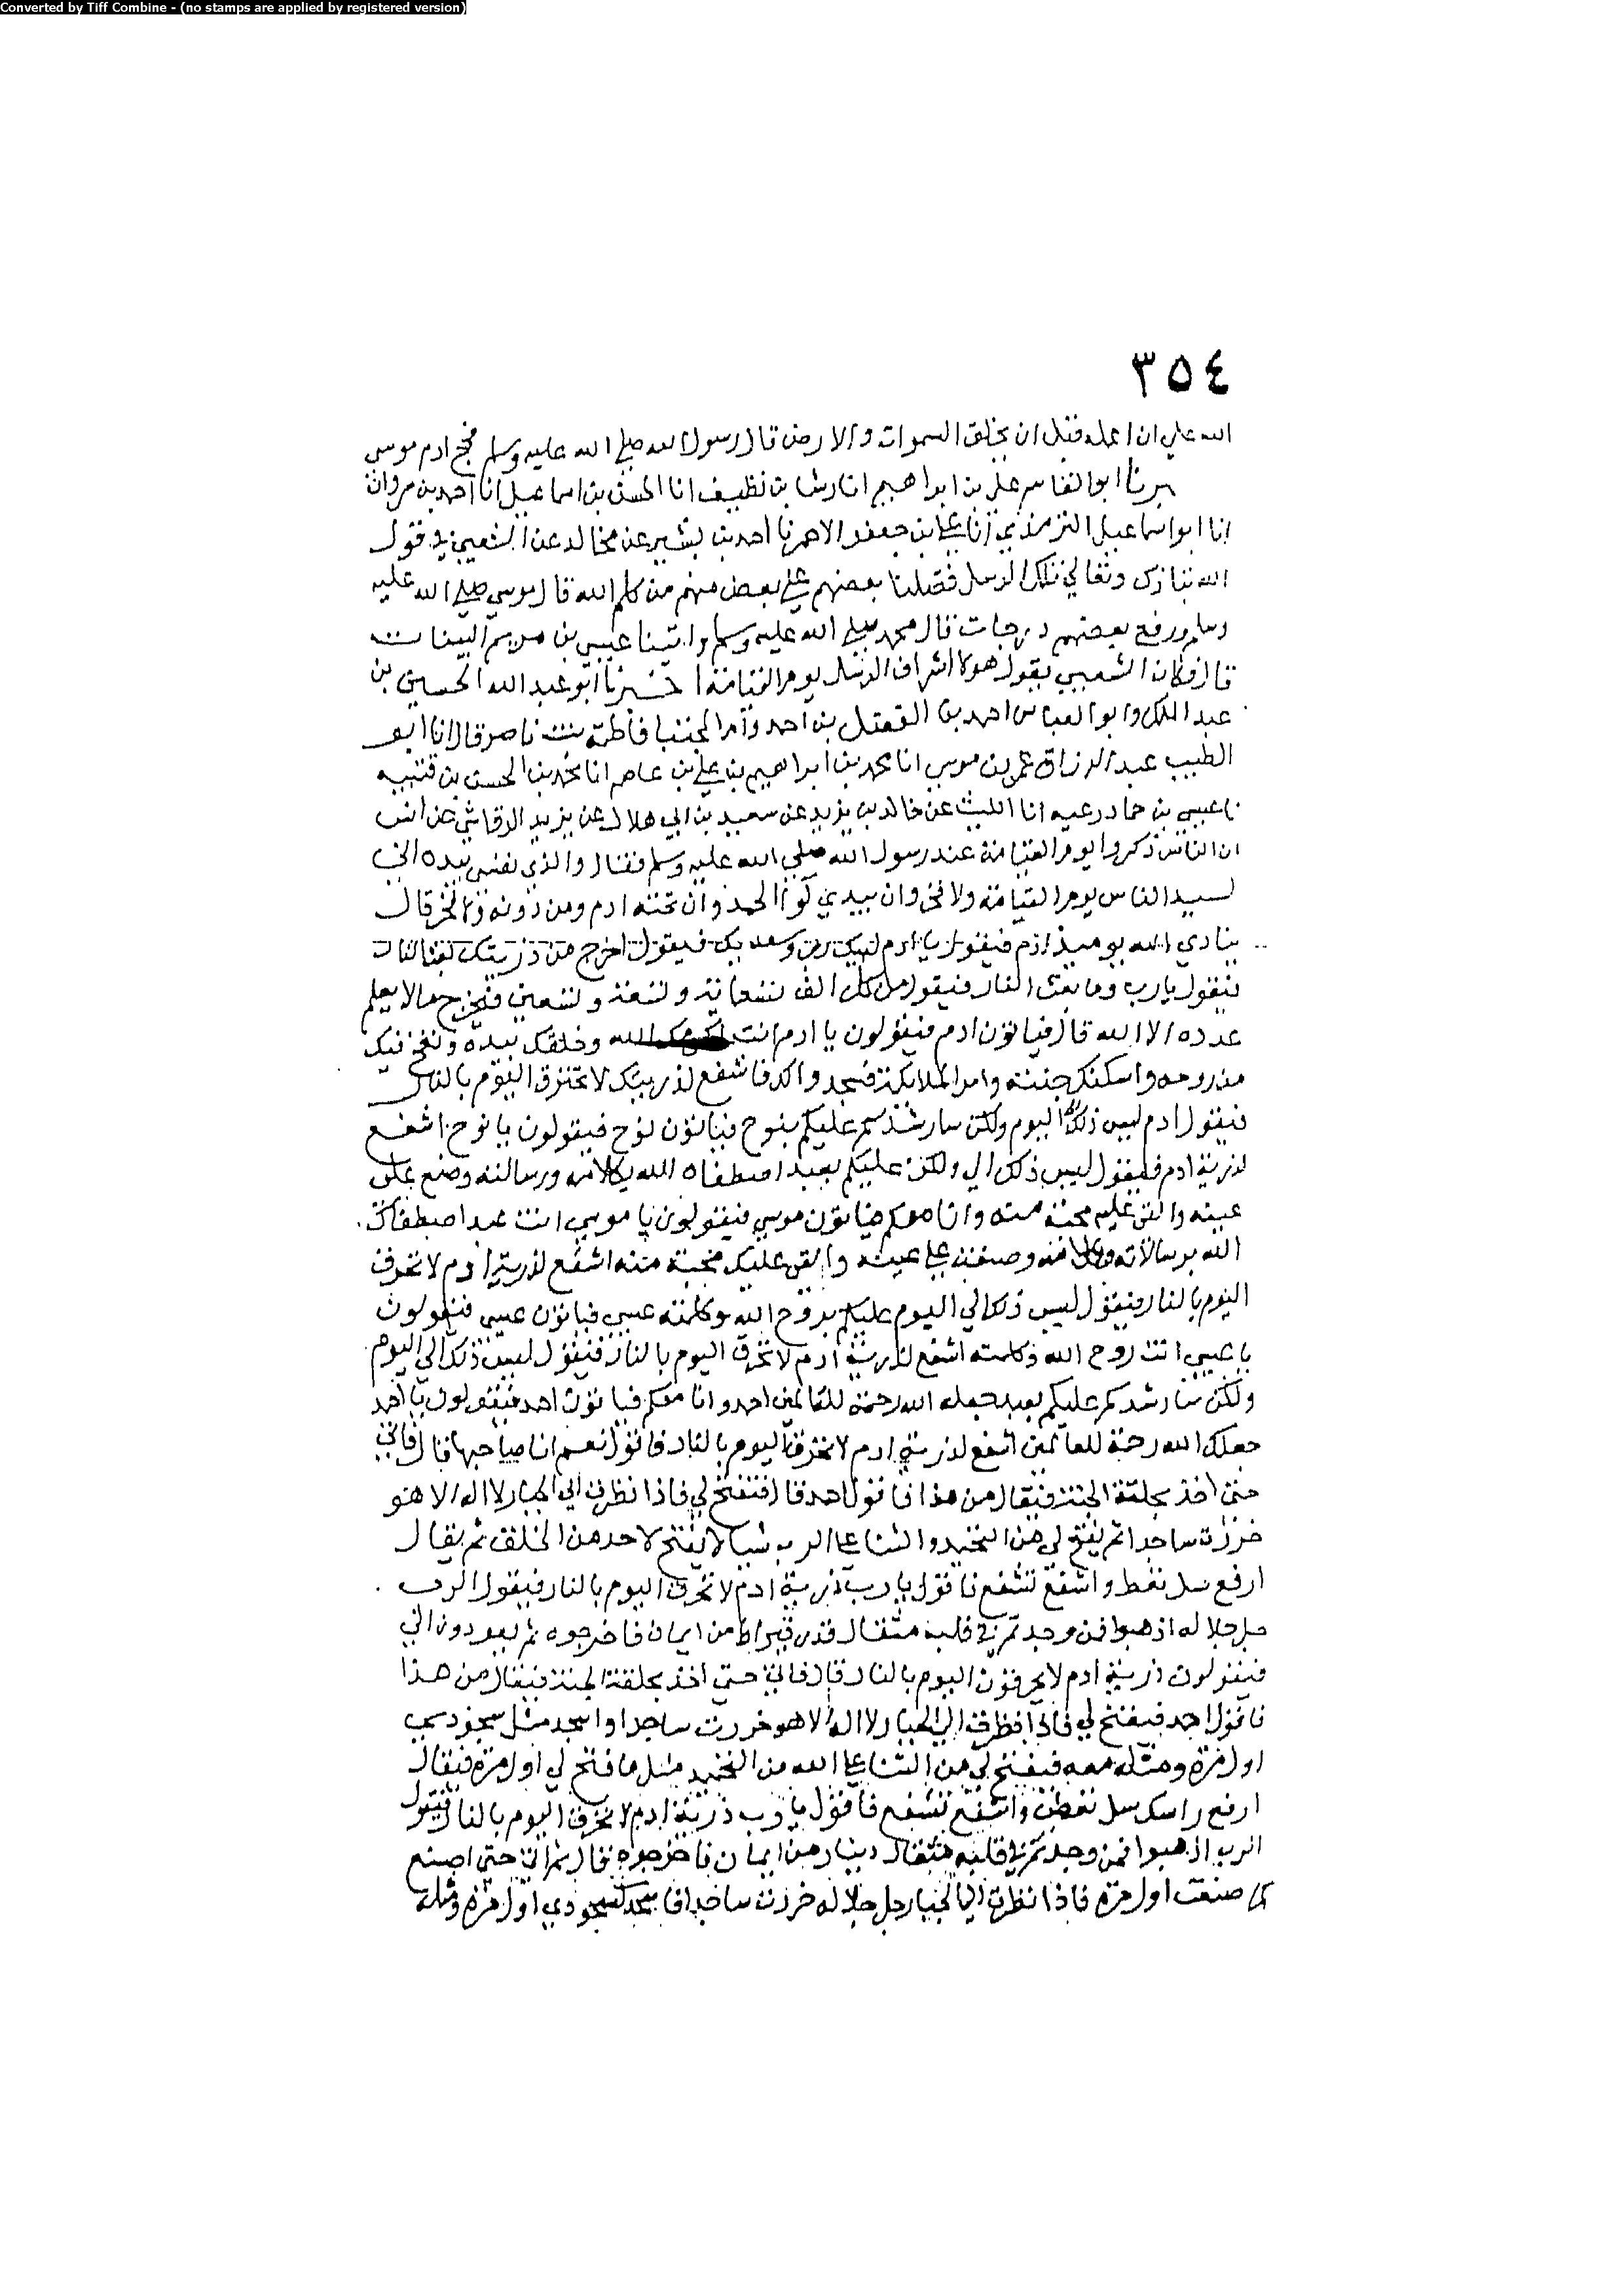 Converted by Tiff Combine - (no stamps are applied by registered version)
٣٥٤
الله علي ان اعمله قبل ان يخلق السموات والارض قال رسول الله صلي الله عليه وسلم فحج ادم موسي
برنا ابو القاسم علي بن ابراهيم انا رشا بن نظيف انا الحسن بن اسماعيل انا احمد بن مروان
انا ابو اسماعيل الترمذي نا علي بن جعفر الاحمر نا احمد بن بشير عن مخالد عن الشعبي في قول
الله تبارك وتعالي تلك الرسل فضلنا بعضهم علي بعض منهم من كلم الله قال موسي صلي الله عليه
وسلم ورفع بعضهم درجات قال محمد صلي الله عليه وسلم واتينا عيسي بن مريم البينات
قال فكان الشعبي يقول هولا اشراف الرسل يوم القيامة اخبرنا ابو عبد الله الحسين بن
عبد الملك وابو العباس احمد بن الفضل بن احمد وام المجتبا فاطمة بنت ناصر قالا انا ابو
الطيب عبد الرزاق عمر بن موسي انا محمد بن ابراهيم بن علي بن عاصم انا محمد بن الحسن بن قتيبه
نا عيسي بن حماد رعبه انا الليث عن خالد بن يزيد عن سعيد بن ابي هلال عن يزيد الرقاشي عن انس
ان الناس ذكروا يوم القيامة عند رسول الله صلي الله عليه وسلم فقال والذي نفسي بيده اني
لسيد الناس يوم القيامة ولا فخر وان بيدي لوا الحمد وان تحته ادم ومن دونه ولا فخر قال
ينادي الله يوميذ ادم فيقول يا ادم لبيك رب وسعديك فيقول اخرج من ذريتك بعث النار
فيقول يارب وما بعث النار فيقول من كل الف تسعماية وتسعة وتسعين فيخرج مالا يعلم
عدده الا الله قال فياتون ادم فيقولون يا ادم انت الله وخلقك بيده ونفخ فيك
من روحه واسكنك جنته وامر الملايكة فسجدوا لك فاشفع لذريتك لا تحترق اليوم بالنار
فيقول ادم ليس ذلك الي اليوم ولكن سارشدكم عليكم بنوح فياتون نوح فيقولون يا نوح اشفع
لذرية ادم فيقول ليس ذلك الي ولكن عليكم بعبد اصطفاه الله بكلامه ورسالته وصنع علي
عينه والقي عليه محبة منه وانا معكم فياتون موسي فيقولون يا موسي انت عبد اصطفاك
الله برسالاته وبكلامه وصنعت علي عينه والقي عليك محبة منه اشفع لذرية ادم لا تحرق
اليوم بالنار فيقول ليس ذلك الي اليوم عليكم بروح الله وكلمته عيسي فياتون عيسي فيقولون
يا عيسي انت روح الله وكلمته اشفع لذرية ادم لا تحرق اليوم بالنار فيقول ليس ذلك الي اليوم
ولكن سارشدكم عليكم بعبد جعله الله رحمة للعالمين احمد وانا معكم فياتون احمد فيقولون يا احمد
جعلك الله رحمة للعالمين اشفع لذرية ادم لا تحرق اليوم بالنار فاقول نعم انا صاحبها قال فاتي
حتي اخذ بحلقة الجنة فيقال من هذا فاقول احمد قال فتفتح لي فاذا نظرت الي الجبار لا اله الا هو
خررت ساجدا ثم يفتح لي من التحميد والثنا علي الرب شيا لا يفتح لاحد من الخلق ثم يقال
ارفع سل تعط واشفع تشفع فاقول يا رب ذرية ادم لا تحرق اليوم بالنار فيقول الرب
جل جلاله اذهبوا فمن وجدتم في قلبه مثقال قدر قيراط من ايمان فاخرجوه ثم يعودون الي
فيقولون ذرية ادم لا يحرقون اليوم بالنار قال فاتي حتي اخذ بحلقة الجنة فيقال من هذا
فاقول احمد فيفتح لي فاذا نظرت الي الجبار لا اله الا هو خررت ساجدا واسجد مثل سجودي
اول مرة ومثله معه فيفتح لي من الثنا علي الله من التحميد مثل ما فتح لي اول مرة فيقال
ارفع راسك سل تعط واشفع تشفع فاقول يا رب ذرية ادم لا تحرق اليوم بالنار فيقول
الرب اذهبوا فمن وجدتم في قلبه مثقال دينار من ايمان فاخرجوه قال ثم اتي حتي اصنع
كما صنعت اول مرة فاذا نظرت الي الجبار جل جلاله خررت ساجدا فاسجد كسجودي اول مرة ومثله